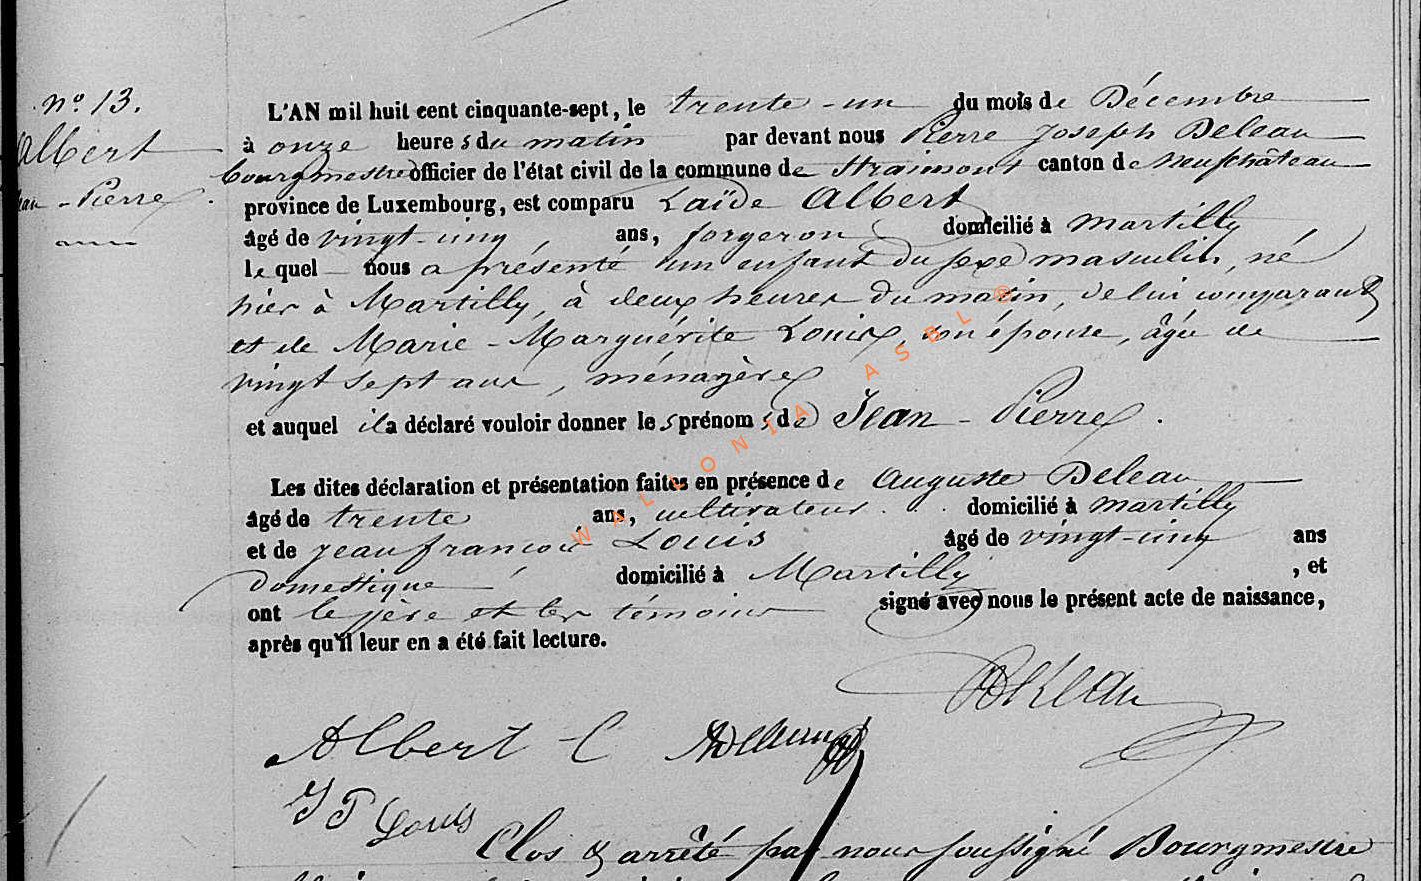 n° 13.
Albert
Jean-Pierre.
L'AN mil huit cent cinquante-sept, le trente-un du mois de Décembre
à onze heures du matin par devant nous Pierre Joseph Deleau
bourgmestre officier de l'état civil de la commune de Straimont canton de neufchâteau
province de Luxembourg, est comparu Laïde Albert
âgé de vingt-cinq, ans, forgeron domicilié à martilly,
lequel nous a présenté un enfant du sexe masculin, né
hier à Martilly, à deux heures du matin, de lui comparant
et de Marie-Marguérite Louis, son épouse, âgée de
vingt sept ans, ménagère
et auquel il a déclaré vouloir donner les prénoms de Jean-Pierre.
Les dites déclaration et présentation faites en présence de Auguste Deleau
âgé de trente ans, cultivateur. domicilié à martilly
et de jean françois Louis âgé de vingt-cinq ans
Domestique domicilié à Martilly, et
ont le père et les témoins signé avec nous le présent acte de naissance,
après qu'il leur en a été fait lecture.
Deleau
Albert C
J F Louis
Clos & arrêté par nous soussigné Bourgmestre
WALLONIA ASBL ®